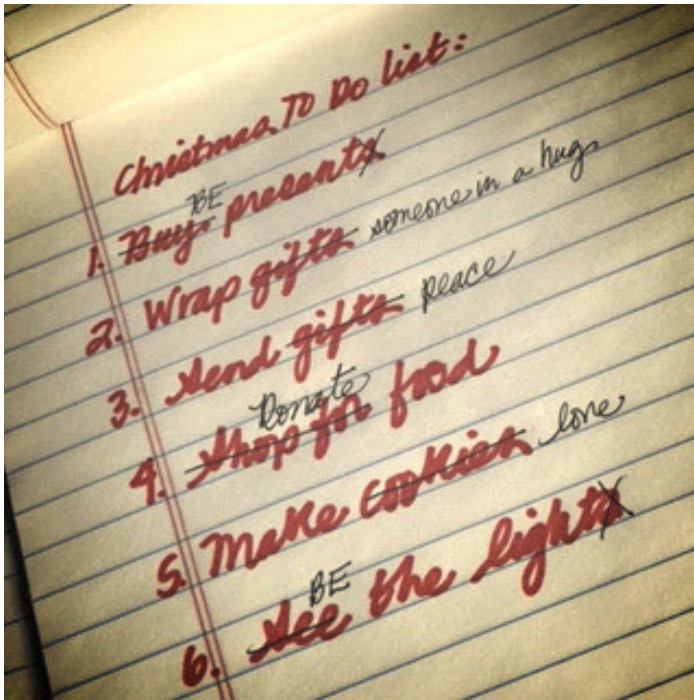 Christmas To Do list:
1. Buy BE presents
2. Wrap gifts someone in a hug
3. Send gifts peace
4. Shop for Donate food
5. Make cookies love
6. See BE the lights